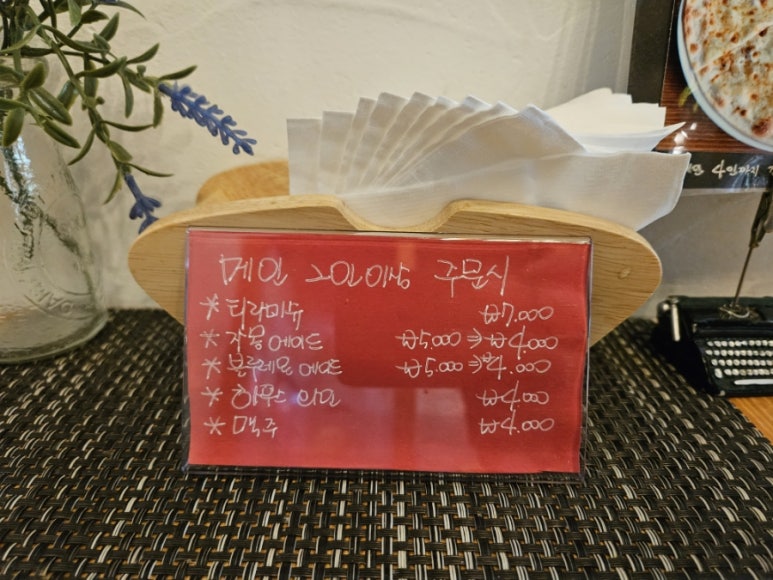 메인 2인이상 주문시
* 티라미슈 ₩7.000
* 자몽에이드 ₩5.000 ⇒ ₩4.000
* 블루레몬에이드 ₩5.000 ⇒ ₩4.000
* 하우스 와인 ₩4.000
* 맥주 ₩4.000
4인까지